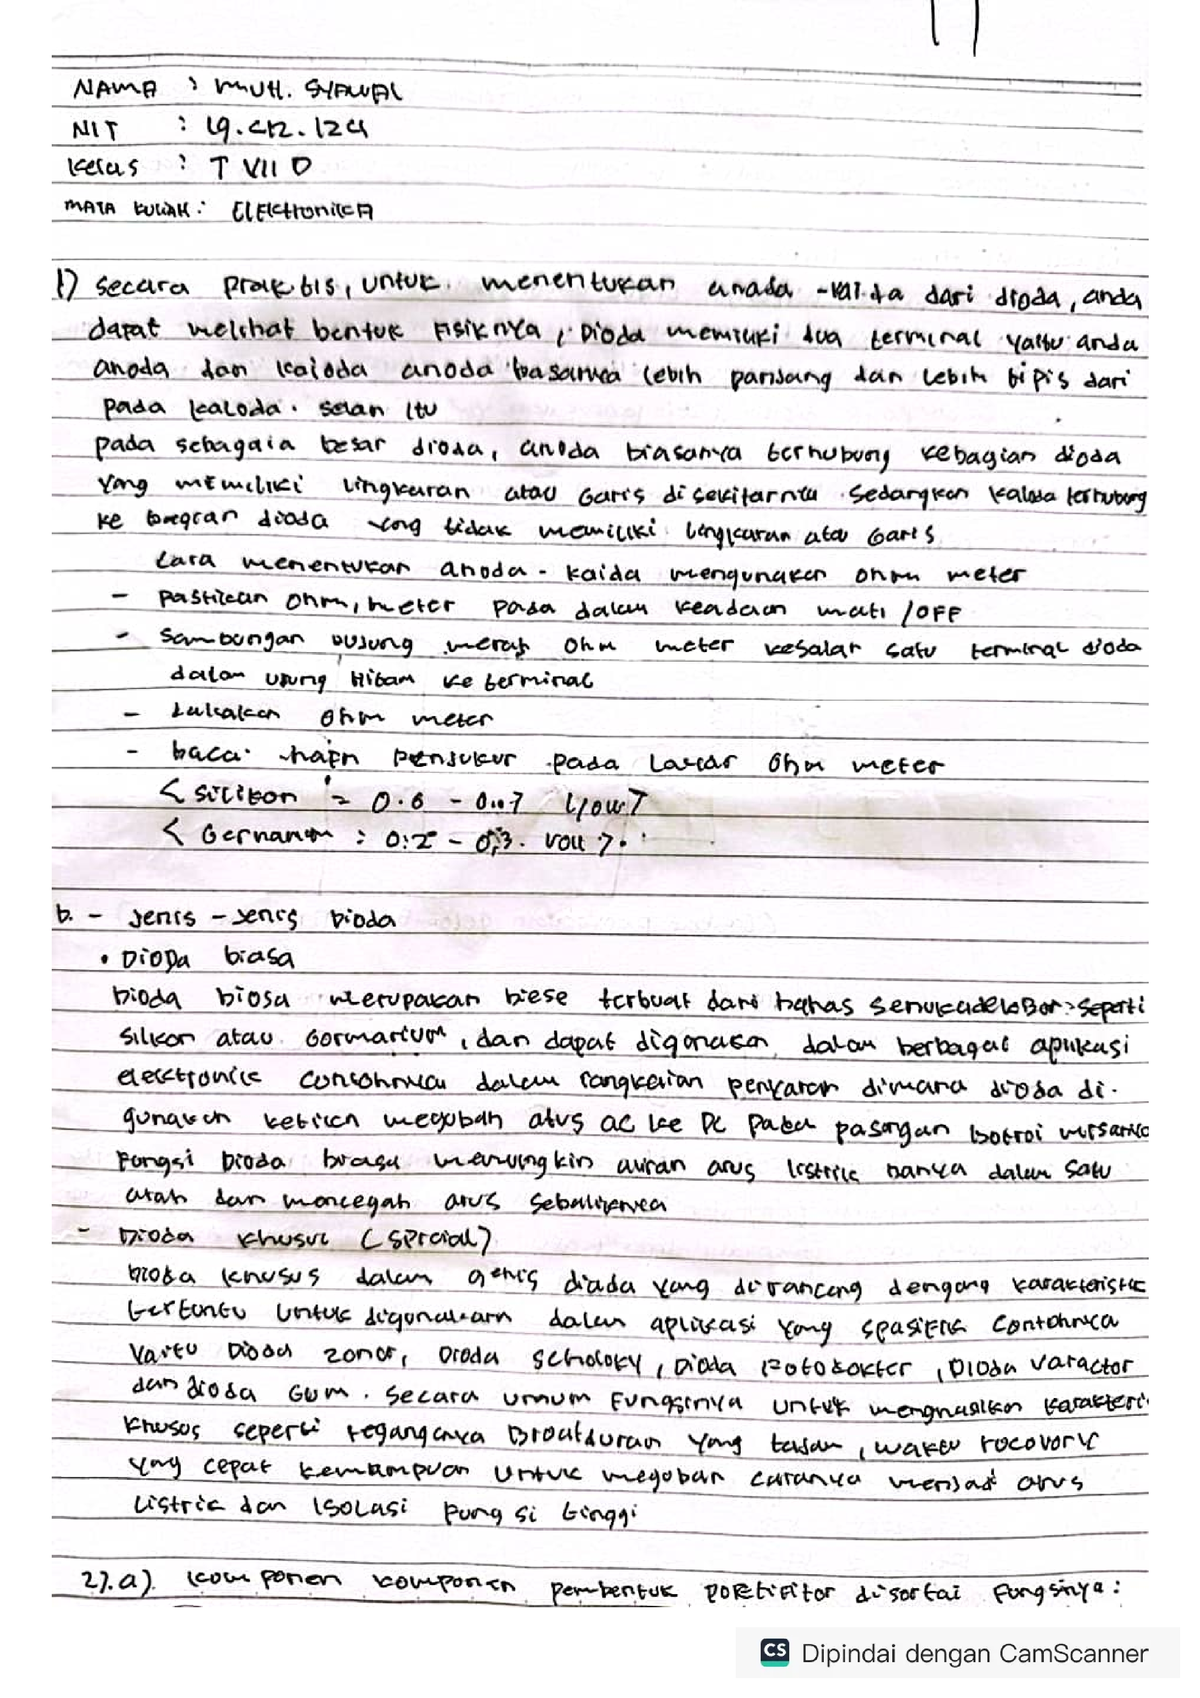 NAMA : MUH. SYAWAL
NIT : 19.42.124
Kelas : T VII D
MATA KULIAH : ElEktronikA
1) secara praktis, untuk menentukan anada - dari dioda, anda
dapat melihat bentuk fisiknya, Dioda memiliki dua terminal yaitu anda
anoda dan katoda anoda biasanya lebih panjang dan lebih tipis dari
pada kaloda. selan itu
pada sebagaia besar dioda, anoda biasanya terhubung kebagian dioda
yang memiliki lingkaran atau Garis disekitarnya sedangkan kaloda terhubung
ke bagian dioda yang tidak memiliki lingkaran atau Garis
Cara menentukan anoda - kaida mengunakan ohm meter
- pastikan ohm, meter pada dalam keadaan mati / OFF
- Sambungan ujung merah Ohm meter kesalar satu terminal dioda
dalam ujung Hitam ke terminal
- Lakukan Ohm meter
- baca pensukur pada Layar Ohm meter
< Silikon = 0.6 - 0.7
< : 0.2 - 0,3. volt >.
b. - Jenis - Jenis Dioda
• Dioda biasa
Dioda biasa merupakan terbuat dari seperti
silikon atau Germanium, dan dapat digunakan dalam berbagai aplikasi
elecktronik contohnya dalam rangkaian dimana dioda di-
gunakan ketika megubah arus ac ke DC pada pasangan
Fungsi Dioda biasa memungkin aliran arus listrik hanya dalam satu
arah dan mencegah arus sebaliknya
- Dioda khusus (spesial)
Dioda khusus dalam dioda yang dirancang dengang karakteristik
tertentu untuk digunakan dalam aplikasi yang spasifik contohnya
yaitu Dioda zener, Dioda scholoky, Dioda, Dioda varactor
dan dioda Gum. secara umum fungsinya untuk karakteri
khusus seperti yang tajam, waktu rocovory
yang cepat kemampuan untuk megubah cahaya menjadi arus
Listrik dan Isolasi fungsi tinggi
2).a). komponen komponen pembentuk disertai fungsinya :
CS Dipindai dengan CamScanner